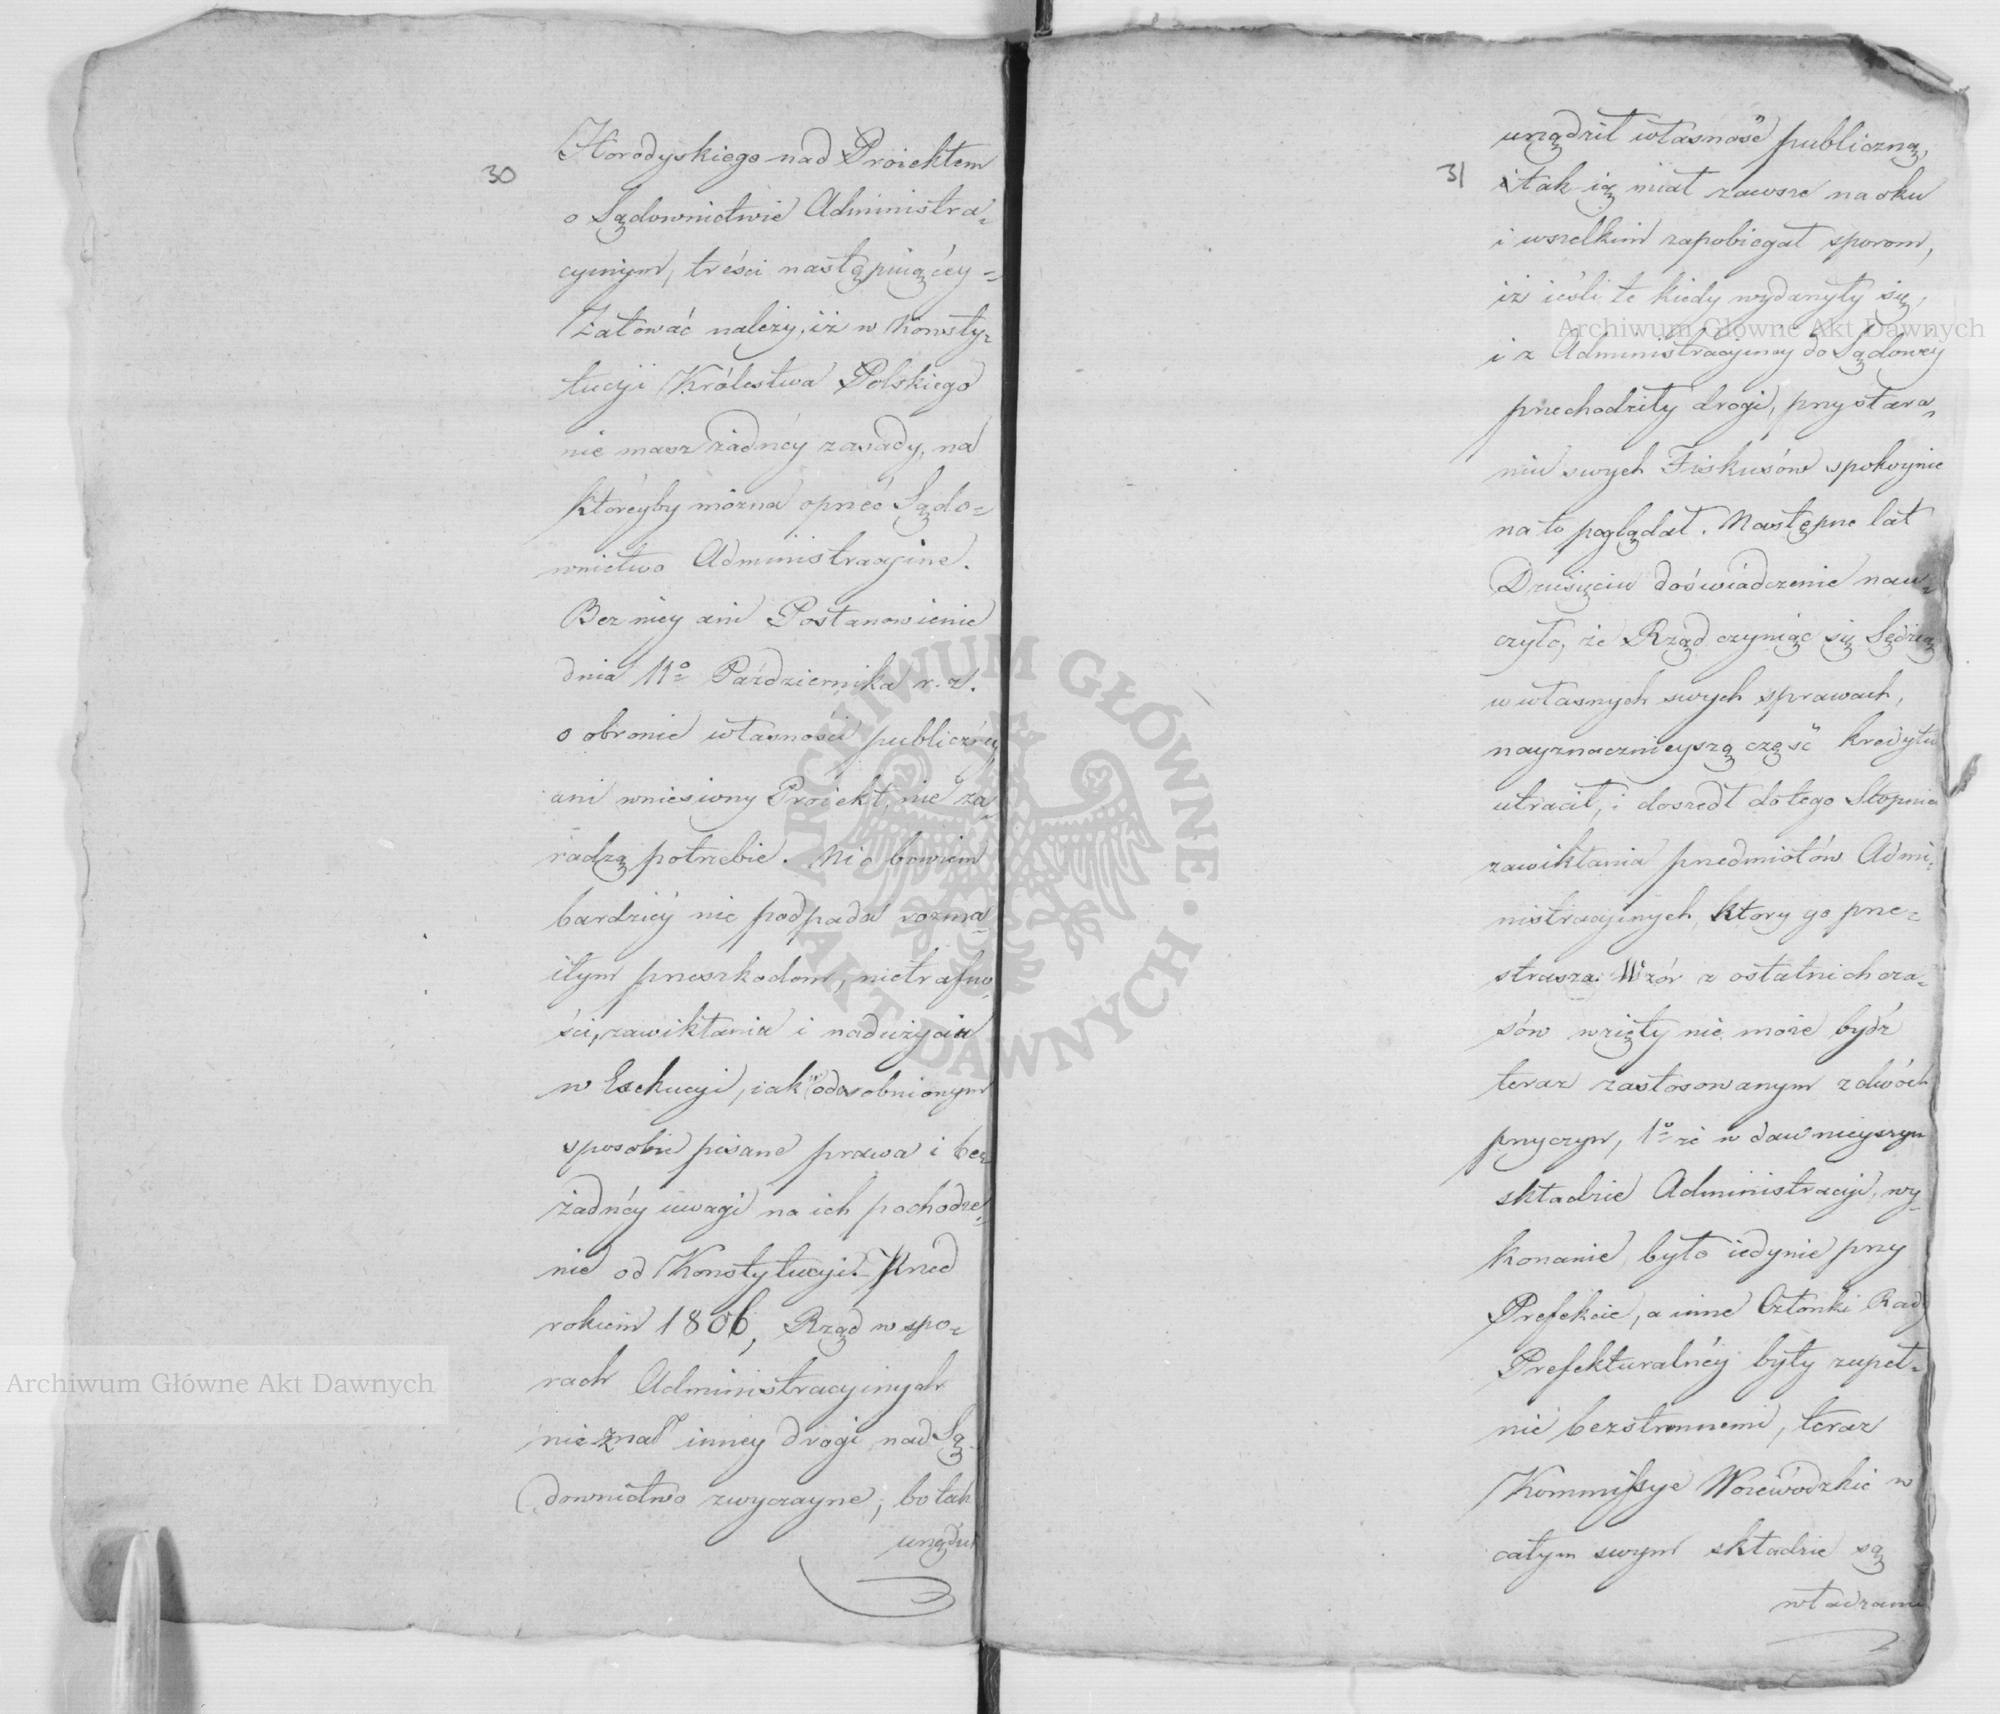 30
Horodyskiego nad Proiektem
o Sądownictwie Administra=
cyinym, treści następuiącéy =
Żałować należy, iż w Konsty=
tucyi Królestwa Polskiego
nie masz żadnéy zasady, na
któréyby można oprzéć Sądo=
wnictwo Administracyine.
Bez niey ani Postanowienie
dnia 11º Października r. z.
o obronie własności publicznéy
ani wniesiony Proiekt, nie za=
radzą potrzebie. Nic bowiem
bardziéy nie podpada rozma=
itym przeszkodom, nietrafno=
ści, zawikłania i nadużycia
w Exekucyi, iak w odosobnionym
sposobie pisane prawa i bez
żadnéy uwagi na ich pochodze=
nie od Konstytucyi. Przed
rokiem 1806, Rząd w spo=
rach Administracyinych
nie znał inney drogi nad Są=
downictwo zwyczayne, bo tak
urządził
31
urządził własność publiczną,
i tak ią miał zawsze na oku
i wszelkim zapobiegał sporom,
iż ieśli te kiedy wydarzyły się,
i z Administracyiney do Sądowey
przechodziły drogi, przy stara=
niu swych Fiskusów spokoynie
na to poglądał. Następne lat
Dziesięciu doświadczenie nau=
czyło, że Rząd czyniąc się Sędzią
w własnych swych sprawach,
nayznacznieyszą część kredytu
utracił, i doszedł do tego Stopnia
zawikłania przedmiotów Admi=
nistracyinych, który go prze=
strasza. Wzór z ostatnich cza=
sów wzięty nie może bydź
teraz zastosowanym z dwóch
przyczyn, 1º że w dawnieyszym
składzie Administracyi, wy=
konanie było iedynie przy
Prefekcie, a inne Członki Rady
Prefekturalnéy były zupeł=
nie bezstronnemi, teraz
Kommissye Woiewódzkie w
całym swym składzie są
władzami
Archiwum Główne Akt Dawnych
Archiwum Główne Akt Dawnych
ARCHIWUM GŁÓWNE · AKT DAWNYCH ·